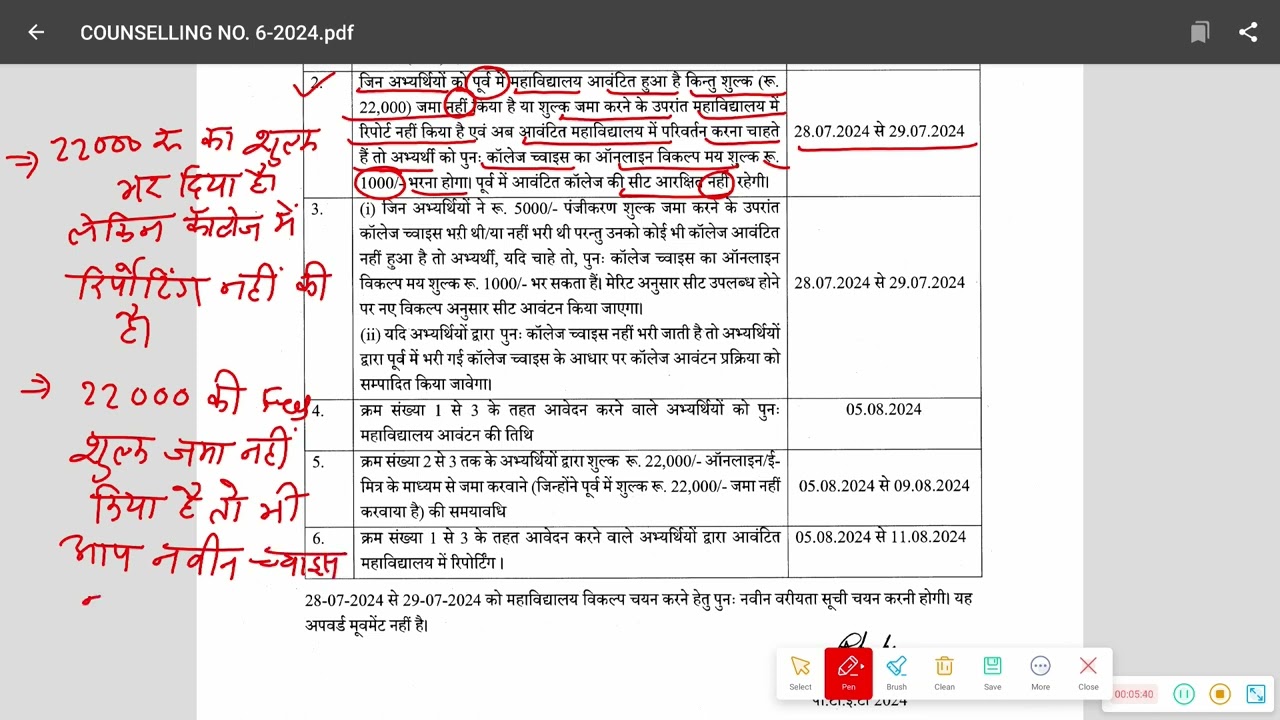 COUNSELLING NO. 6-2024.pdf
2.
जिन अभ्यर्थियों को पूर्व में महाविद्यालय आवंटित हुआ है किन्तु शुल्क (रू.
22,000) जमा नहीं किया है या शुल्क जमा करने के उपरांत महाविद्यालय में
रिपोर्ट नहीं किया है एवं अब आवंटित महाविद्यालय में परिवर्तन करना चाहते
हैं तो अभ्यर्थी को पुनः कॉलेज च्वाइस का ऑनलाइन विकल्प मय शुल्क रू.
1000/- भरना होगा। पूर्व में आवंटित कॉलेज की सीट आरक्षित नहीं रहेगी।
28.07.2024 से 29.07.2024
3.
(i) जिन अभ्यर्थियों ने रू. 5000/- पंजीकरण शुल्क जमा करने के उपरांत
कॉलेज च्वाइस भरी थी/या नहीं भरी थी परन्तु उनको कोई भी कॉलेज आवंटित
नहीं हुआ है तो अभ्यर्थी, यदि चाहे तो, पुनः कॉलेज च्वाइस का ऑनलाइन
विकल्प मय शुल्क रू. 1000/- भर सकता हैं। मेरिट अनुसार सीट उपलब्ध होने
पर नए विकल्प अनुसार सीट आवंटन किया जाएगा।
(ii) यदि अभ्यर्थियों द्वारा पुनः कॉलेज च्वाइस नहीं भरी जाती है तो अभ्यर्थियों
द्वारा पूर्व में भरी गई कॉलेज च्वाइस के आधार पर कॉलेज आवंटन प्रक्रिया को
सम्पादित किया जावेगा।
28.07.2024 से 29.07.2024
4.
क्रम संख्या 1 से 3 के तहत आवेदन करने वाले अभ्यर्थियों को पुनः
महाविद्यालय आवंटन की तिथि
05.08.2024
5.
क्रम संख्या 2 से 3 तक के अभ्यर्थियों द्वारा शुल्क रू. 22,000/- ऑनलाइन/ई-
मित्र के माध्यम से जमा करवाने (जिन्होंने पूर्व में शुल्क रू. 22,000/- जमा नहीं
करवाया है) की समयावधि
05.08.2024 से 09.08.2024
6.
क्रम संख्या 1 से 3 के तहत आवेदन करने वाले अभ्यर्थियों द्वारा आवंटित
महाविद्यालय में रिपोर्टिंग।
05.08.2024 से 11.08.2024
28-07-2024 से 29-07-2024 को महाविद्यालय विकल्प चयन करने हेतु पुनः नवीन वरीयता सूची चयन करनी होगी। यह
अपवर्ड मूवमेंट नहीं है।
पी.टी.ई.टी 2024
⇒ 22000 रु का शुल्क
भर दिया है।
लेकिन कॉलेज में
रिर्पोटिंग नहीं की
है।
⇒ 22000 की Fees
शुल्क जमा नहीं
किया है तो भी
आप नवीन च्वाइस
Select
Pen
Brush
Clean
Save
More
Close
00:05:40